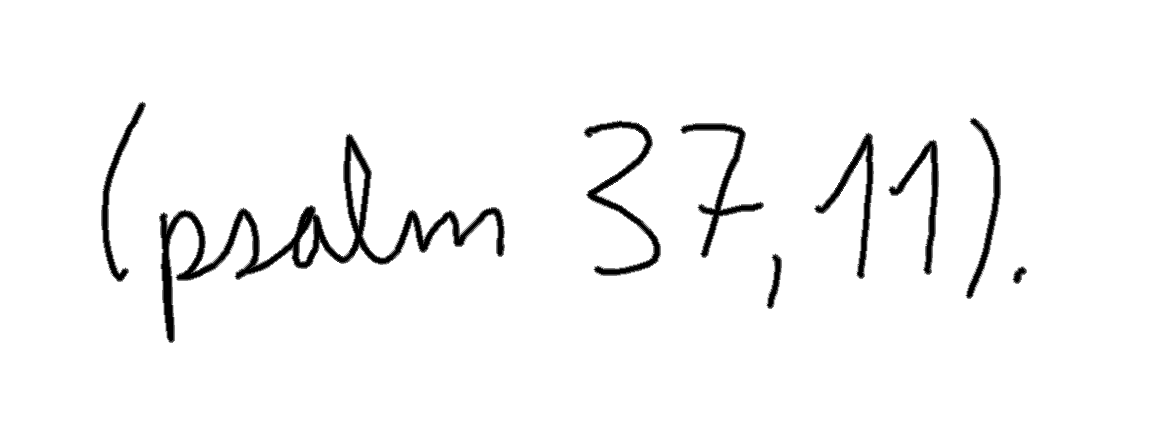 (psalm 37,11).